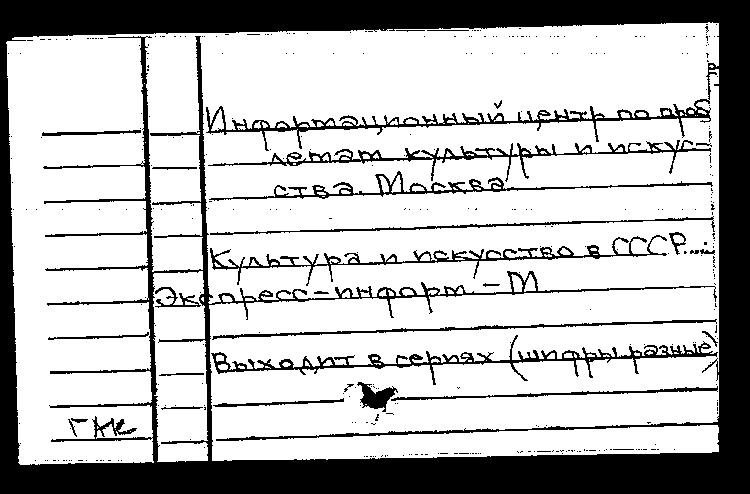 Информационный центр по проб
летат культуры и искус-
ства. Москва.
Культура и искусство в СССР...:
Экспресс-информ - М
Выходит в сериях (шифры разные)
ГАК